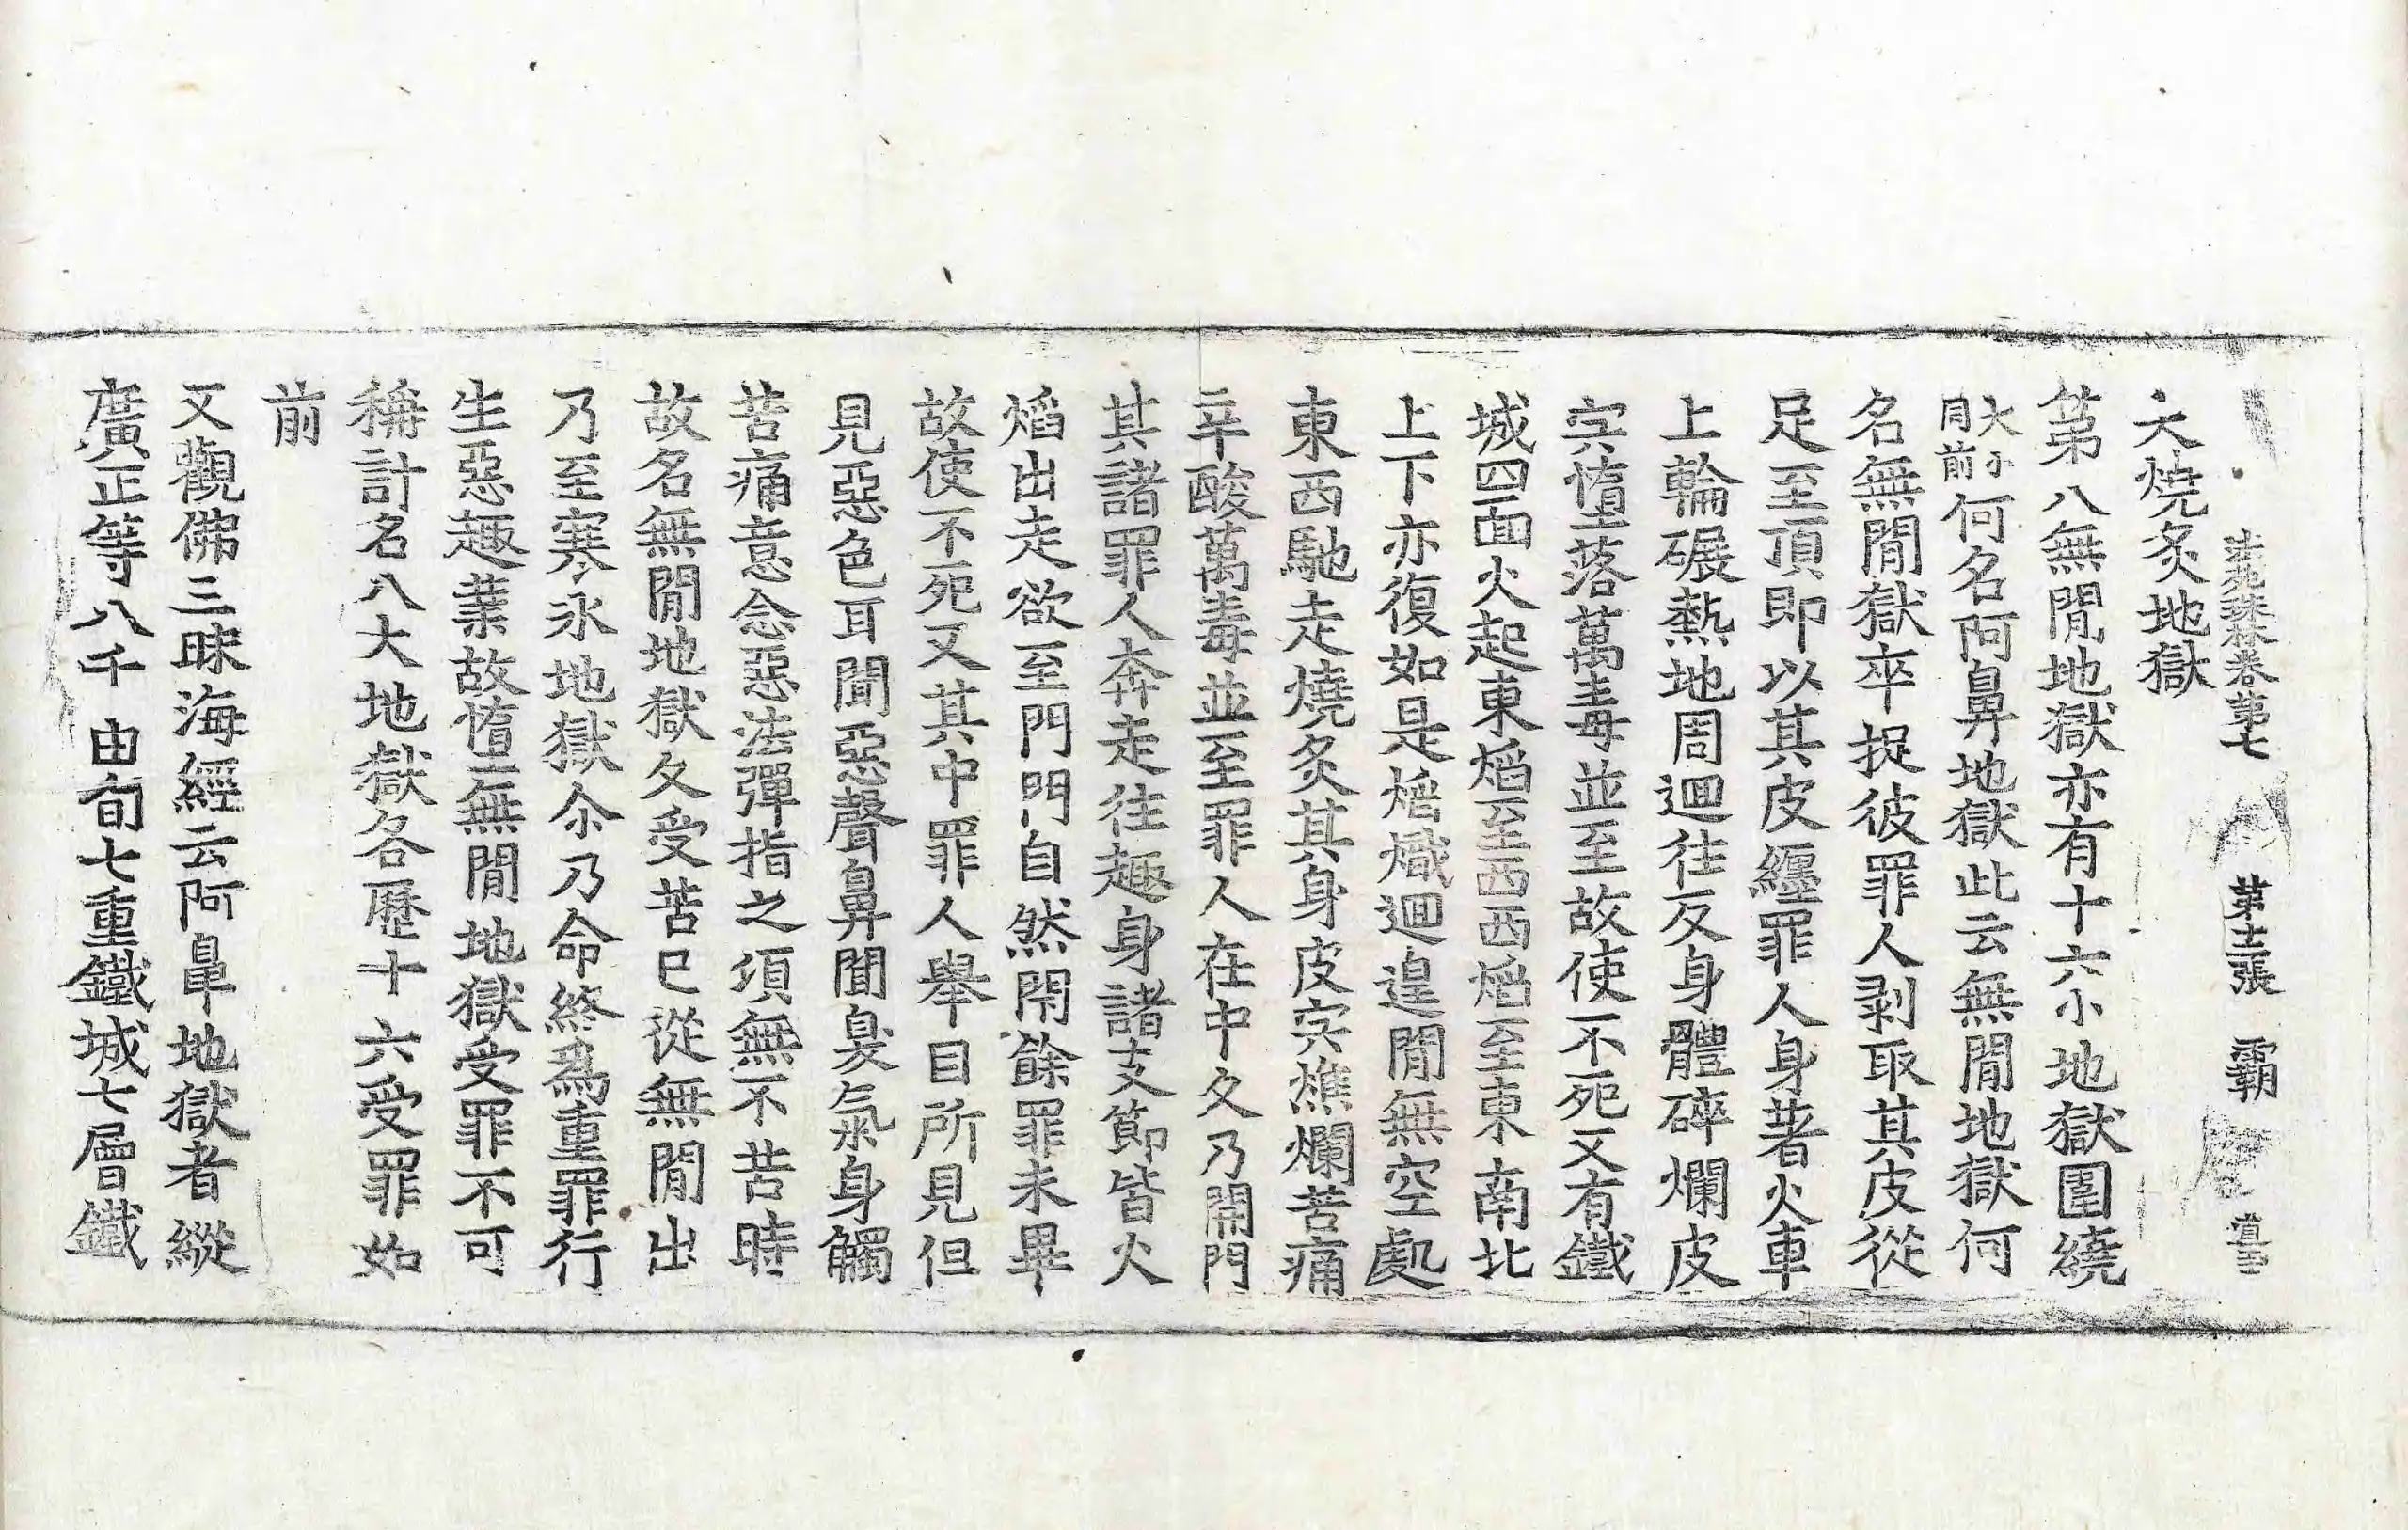 法苑珠林卷第七 第十二張 霸
大燒炙地獄
第八無閒地獄亦有十六小地獄圍繞
大小同前何名阿鼻地獄此云無閒地獄何
名無閒獄卒捉彼罪人剥取其皮從
足至頂即以其皮纏罪人身著火車
上輪碾熱地周迴往反身體碎爛皮
宍墮落萬毒並至故使不死又有鐵
城四面火起東熖至西西熖至東南北
上下亦復如是熖熾迴遑閒無空處
東西馳走燒炙其身皮宍燋爛苦痛
辛酸萬毒並至罪人在中久乃開門
其諸罪人奔走往趣身諸支節皆火
熖出走欲至門門自然閇餘罪未畢
故使不死又其中罪人舉目所見但
見惡色耳聞惡聲鼻聞臭氣身觸
苦痛意念惡法彈指之頃無不苦時
故名無閒地獄久受苦已從無閒出
乃至寒氷地獄尒乃命終爲重罪行
生惡趣業故墮無閒地獄受罪不可
稱計名八大地獄各歷十六受罪如
前
又觀佛三昧海經云阿鼻地獄者縱
廣正等八千由旬七重鐵城七層鐵